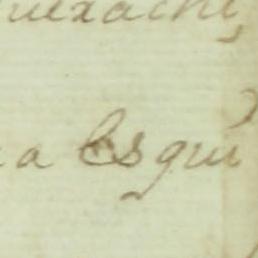 uexachi,
a Esqui